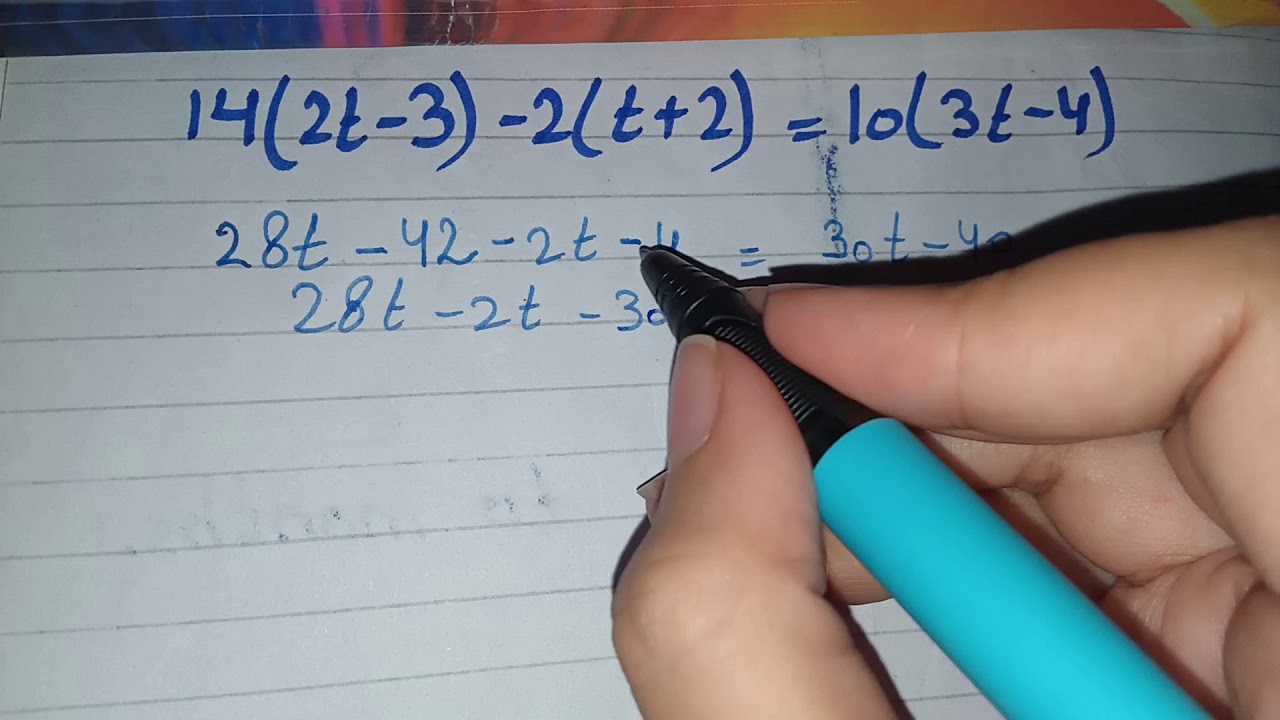 14(2t-3)-2(t+2)=10(3t-4)
28t-42-2t-4=30t-40
28t-2t-30